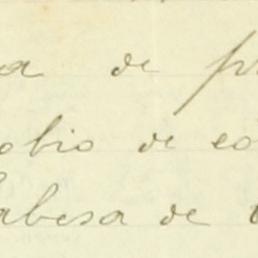 a de pr
obio de co
abesa de